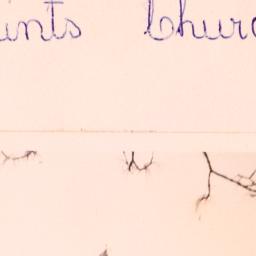 ints Churc